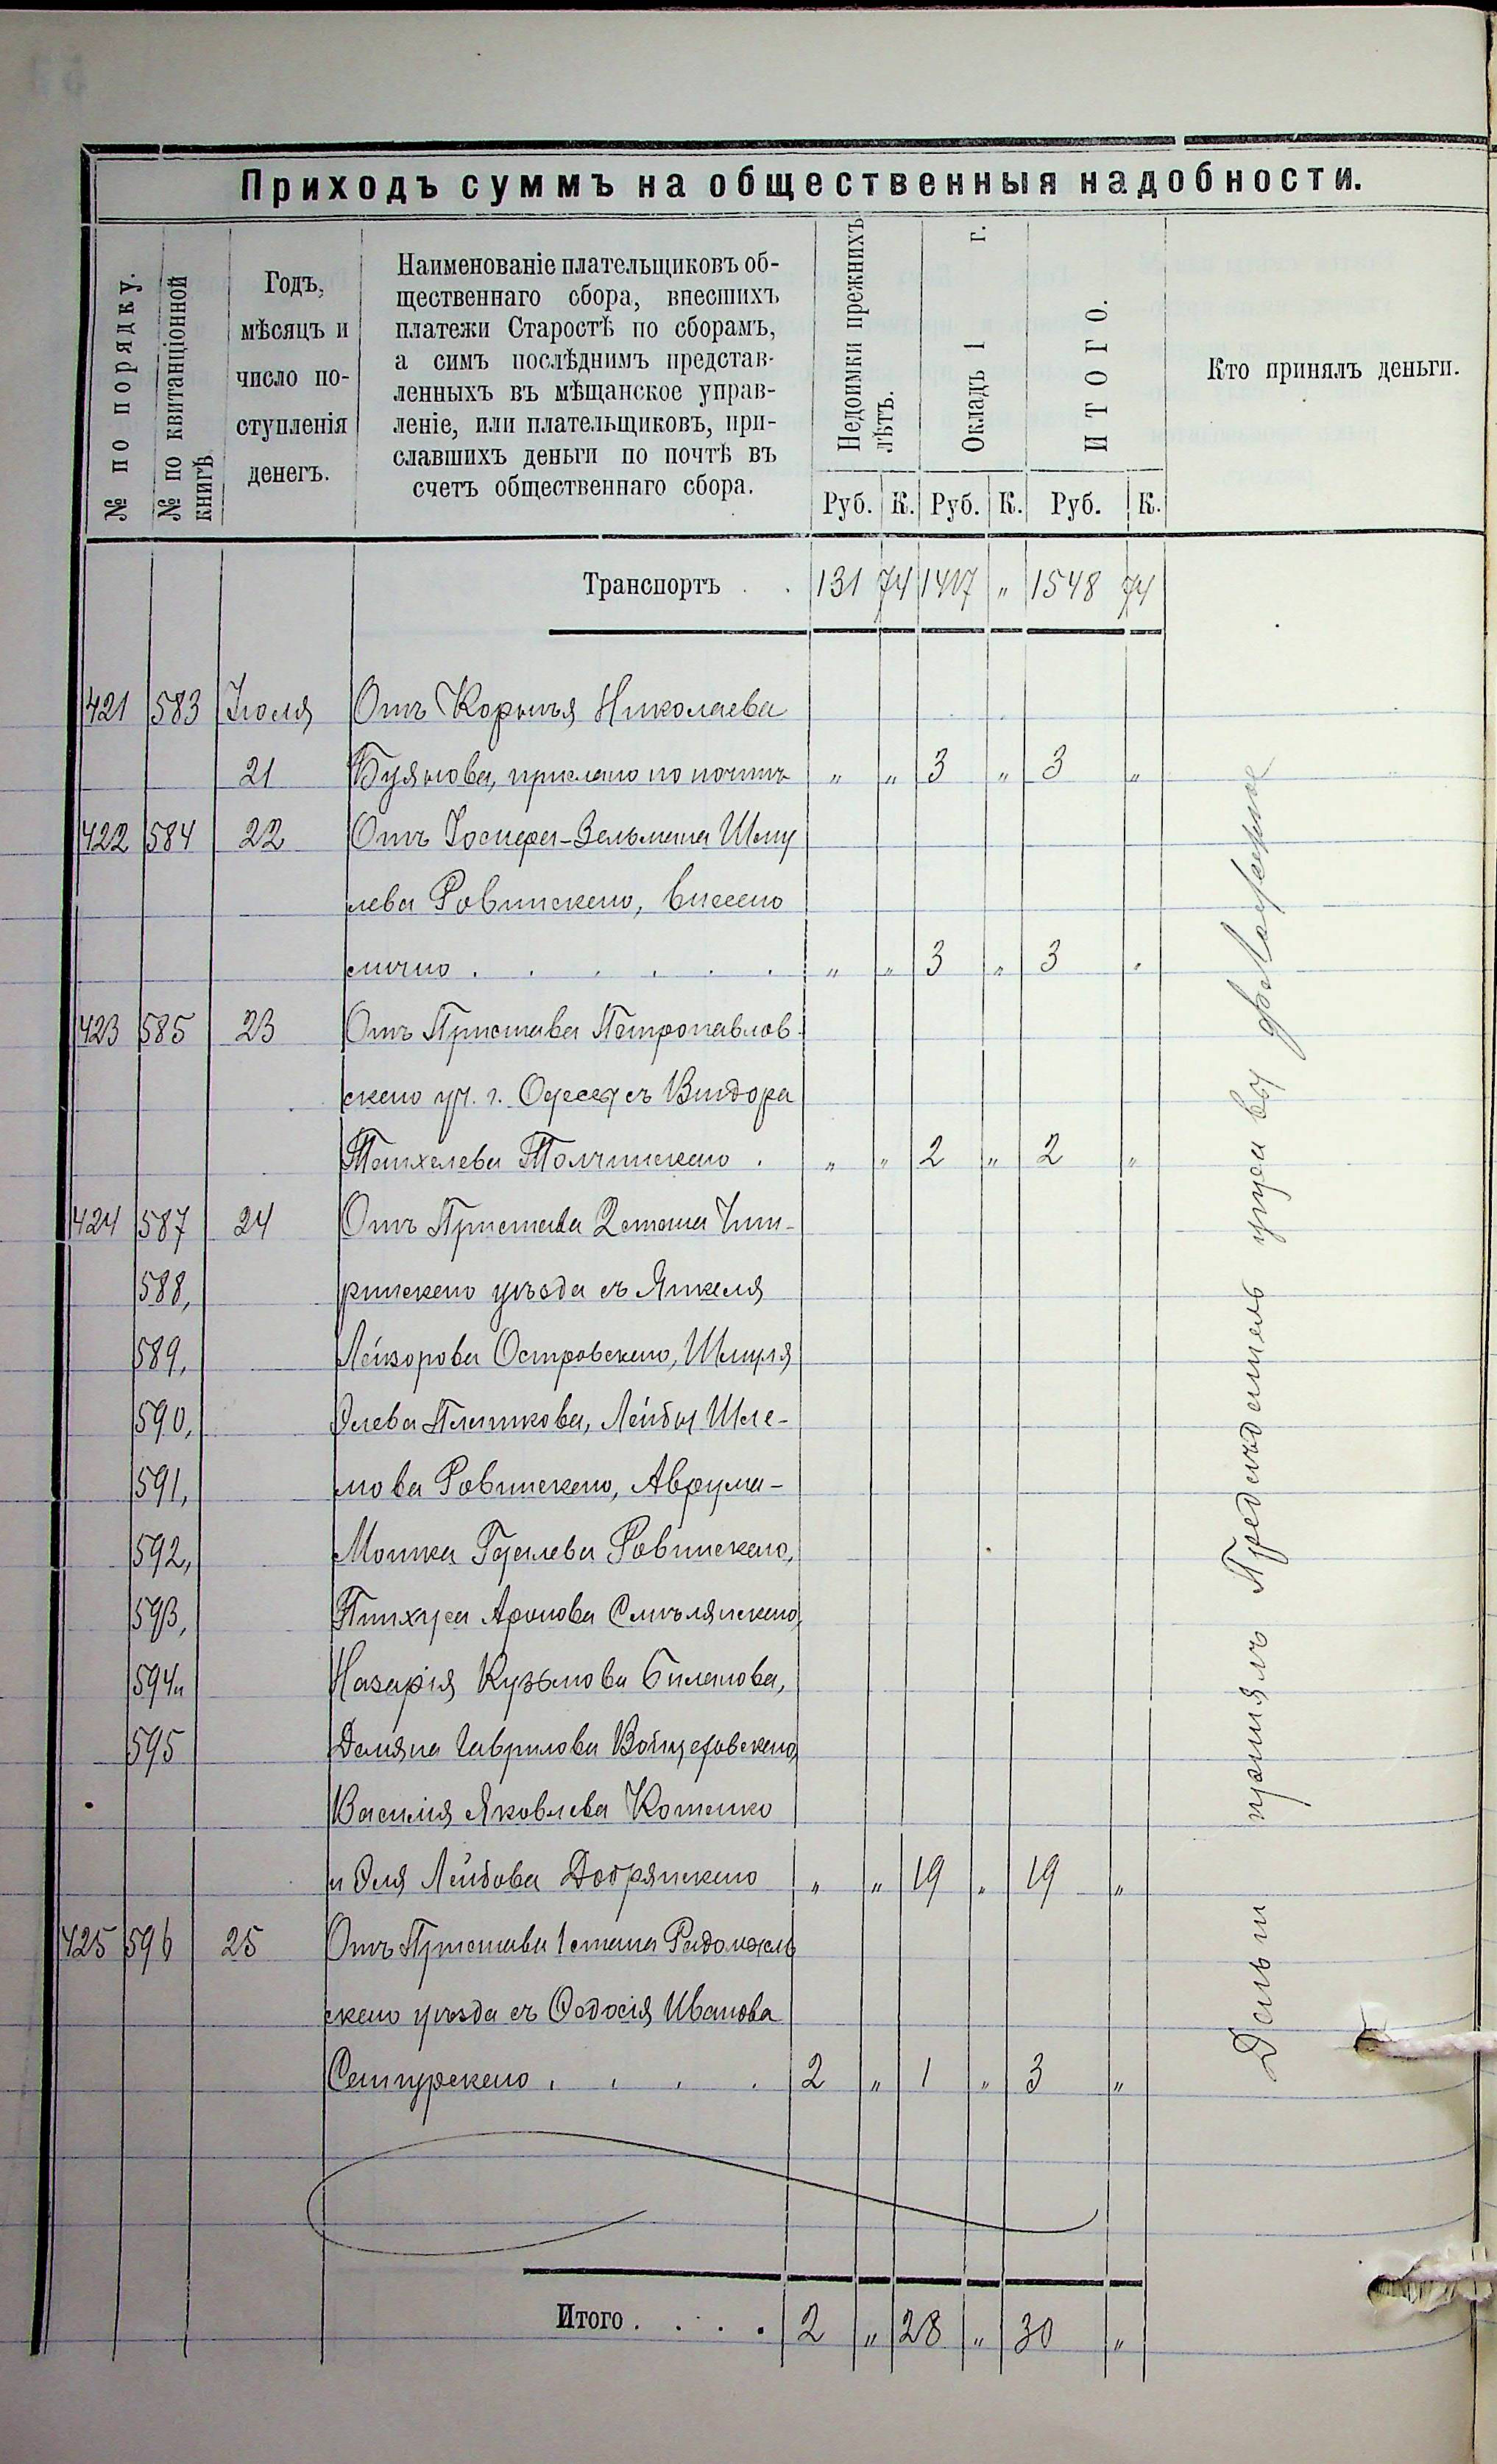 Приходъ суммъ на общественныя надобности.
№ по порядку.
№ по квитанціонной
книгѣ.
Годъ,
мѣсяцъ и
число по-
ступленія
денегъ.
Наименованіе плательщиковъ об-
щественнаго сбора, внесшихъ
платежи Старостѣ по сборамъ,
а симъ послѣднимъ представ-
ленныхъ въ мѣщанское управ-
леніе, или плательщиковъ, при-
славшихъ деньги по почтѣ въ
счетъ общественнаго сбора.
Недоимки прежнихъ
лѣтъ.
Окладъ 1 г.
ИТОГО.
Кто принялъ деньги.
Руб. К. Руб. К. Руб. К.
Транспортъ . . 131 74 1417 „ 1548 74
421 583 Іюля Отъ Корнѣя Николаева
21 Буянова, прислано по почтѣ „ „ 3 „ 3 „
422 584 22 Отъ Іосифа-Зельмана Шму
лева Ровинскаго, внесено
лично . . . . . . „ „ 3 „ 3 „
423 585 23 Отъ Пристава Петропавлов-
скаго уч. г. Одессы съ
Толчинскаго . „ „ 2 „ 2 „
424 587 24 Отъ Пристава 2 стана Чиги-
588, ринскаго уѣзда съ Янкеля
589, Лейзорова Островскаго, Шмуля
590, Элева Плоткова, Лейбы Шле-
591, мова Ровинскаго, Аврума-
592, Мошка Ровинскаго,
593, Пинхуса Аронова Смѣлянскаго,
594 и Назарія Кузьмова
595 Демяна Гаврилова
Василія Яковлева Котенко
и Эля Лейбова Добрянскаго „ „ 19 „ 19 „
425 596 25 Отъ Пристава 1 стана Радомысль
скаго уѣзда съ Ѳедосія Иванова
2 „ 1 „ 3 „
Итого . . . . 2 „ 28 „ 30 „
Деньги принялъ Предсѣдатель